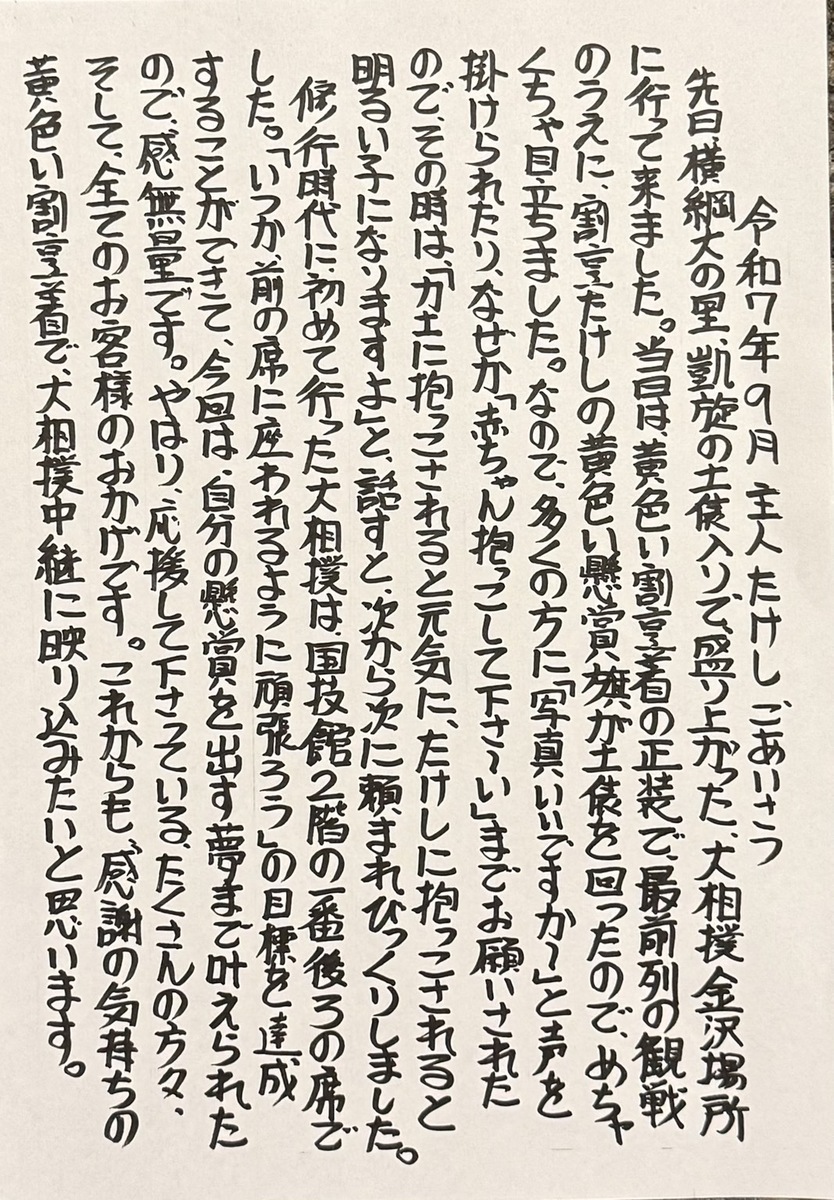 令和7年9月 主人たけし ごあいさつ
先日横綱大の里、凱旋の土俵入りで、盛り上がった、大相撲金沢場所
に行って来ました。当日は、黄色い割烹着の正装で、最前列の観戦
のうえに、割烹たけしの黄色い懸賞旗が土俵を回ったので、めちゃ
くちゃ目立ちました。なので、多くの方に「写真いいですか〜」と声を
掛けられたり、なぜか「赤ちゃん抱っこして下さ〜い」までお願いされた
ので、その時は、「力士に抱っこされると元気に、たけしに抱っこされると
明るい子になりますよ」と、話すと、次から次に頼まれびっくりしました。
修行時代に初めて行った大相撲は、国技館2階の一番後ろの席で
した。「いつか前の席に座われるように頑張ろう」の目標を達成
することができて、今回は、自分の懸賞を出す夢まで叶えられた
ので、感無量です。やはり、応援して下さっている、たくさんの方々、
そして、全てのお客様のおかげです。これからも、感謝の気持ちの
黄色い割烹着で、大相撲中継に映り込みたいと思います。